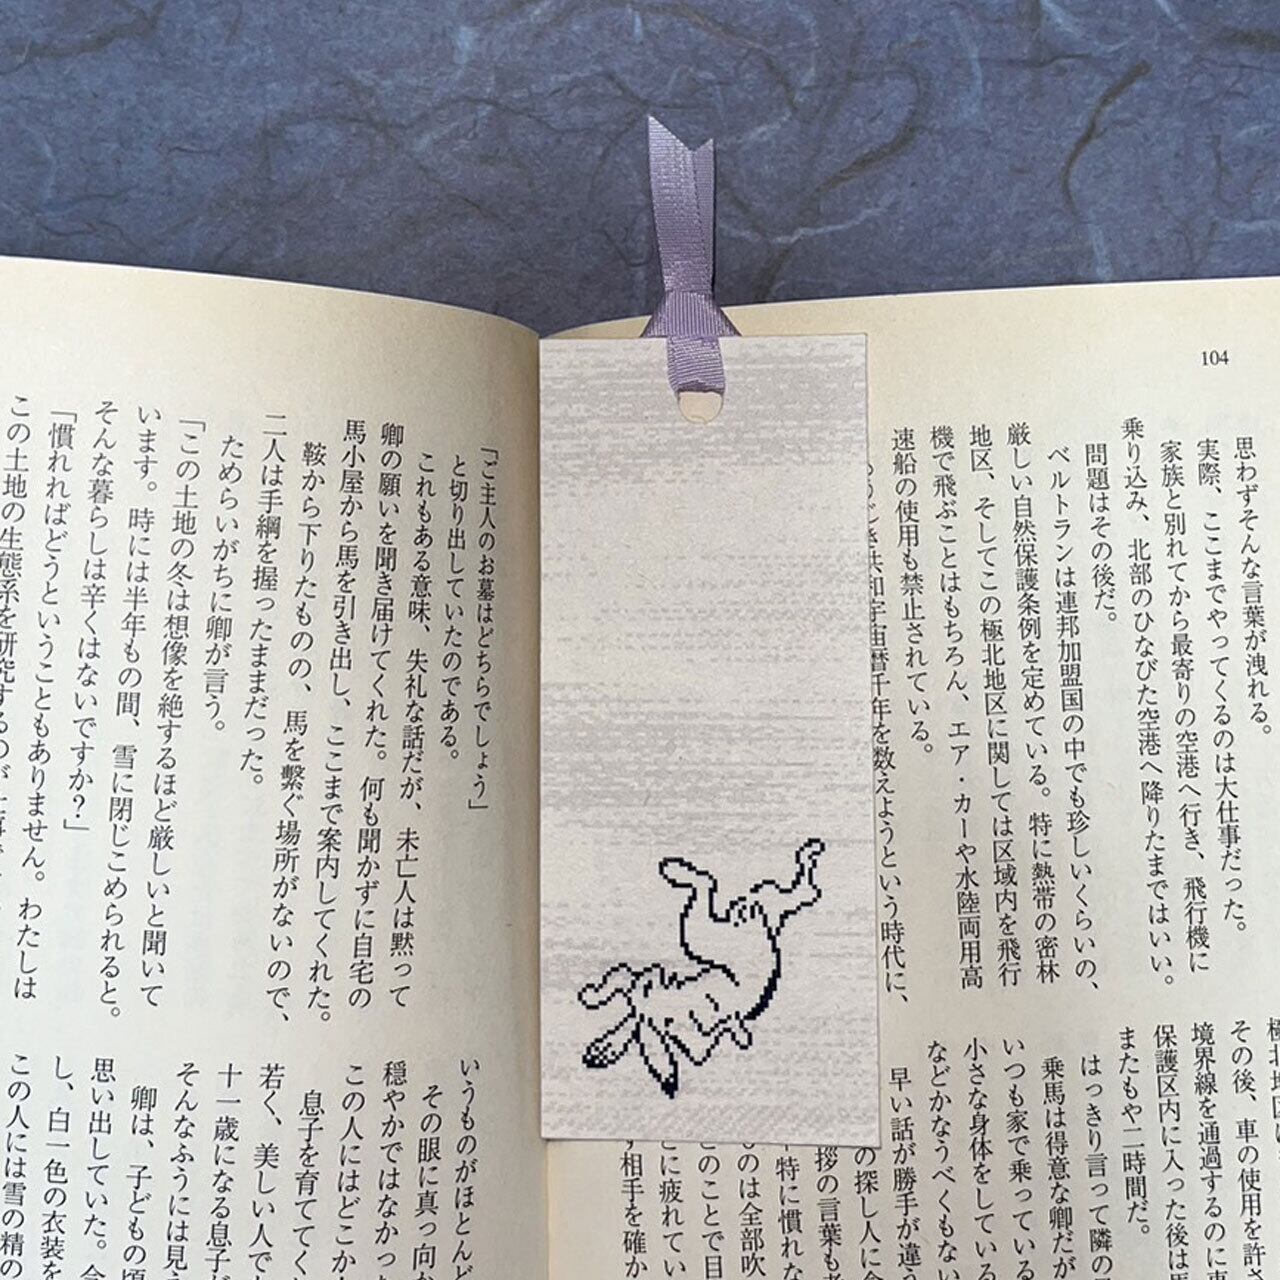 104
思わずそんな言葉が洩れる。
実際、ここまでやってくるのは大仕事だった。
家族と別れてから最寄りの空港へ行き、飛行機に
乗り込み、北部のひなびた空港へ降りたまではいい。
問題はその後だ。
ベルトランは連邦加盟国の中でも珍しいくらいの、
厳しい自然保護条例を定めている。特に熱帯の密林
地区、そしてこの極北地区に関しては区域内を飛行
機で飛ぶことはもちろん、エア・カーや水陸両用高
速船の使用も禁止されている。
共和宇宙暦千年を数えようという時代に、
その後、車の使用を許さ
境界線を通過するのに車
保護区内に入った後は
またもや二時間だ。
はっきり言って隣の
乗馬は得意な卿だが
いつも家で乗っている
小さな身体をしている
などかなうべくもない
早い話が勝手が違う
の探し人に会
拶の言葉も
特に慣れな
のは全部吹
このことで目
に疲れてい
す相手を確か
「ご主人のお墓はどちらでしょう」
と切り出していたのである。
これもある意味、失礼な話だが、未亡人は黙って
卿の願いを聞き届けてくれた。何も聞かずに自宅の
馬小屋から馬を引き出し、ここまで案内してくれた。
鞍から下りたものの、馬を繋ぐ場所がないので、
二人は手綱を握ったままだった。
ためらいがちに卿が言う。
「この土地の冬は想像を絶するほど厳しいと聞いて
います。時には半年もの間、雪に閉じこめられると。
そんな暮らしは辛くはないですか?」
「慣れればどうということもありません。わたしは
この土地の生態系を研究するのが
いうものがほとんど
その眼に真っ向か
穏やかではなかった
この人にはどこか
息子を育ててく
若く、美しい人で
十一歳になる息子が
そんなふうには見え
卿は、子どもの頃
思い出していた。
し、白一色の衣装を
この人には雪の精の